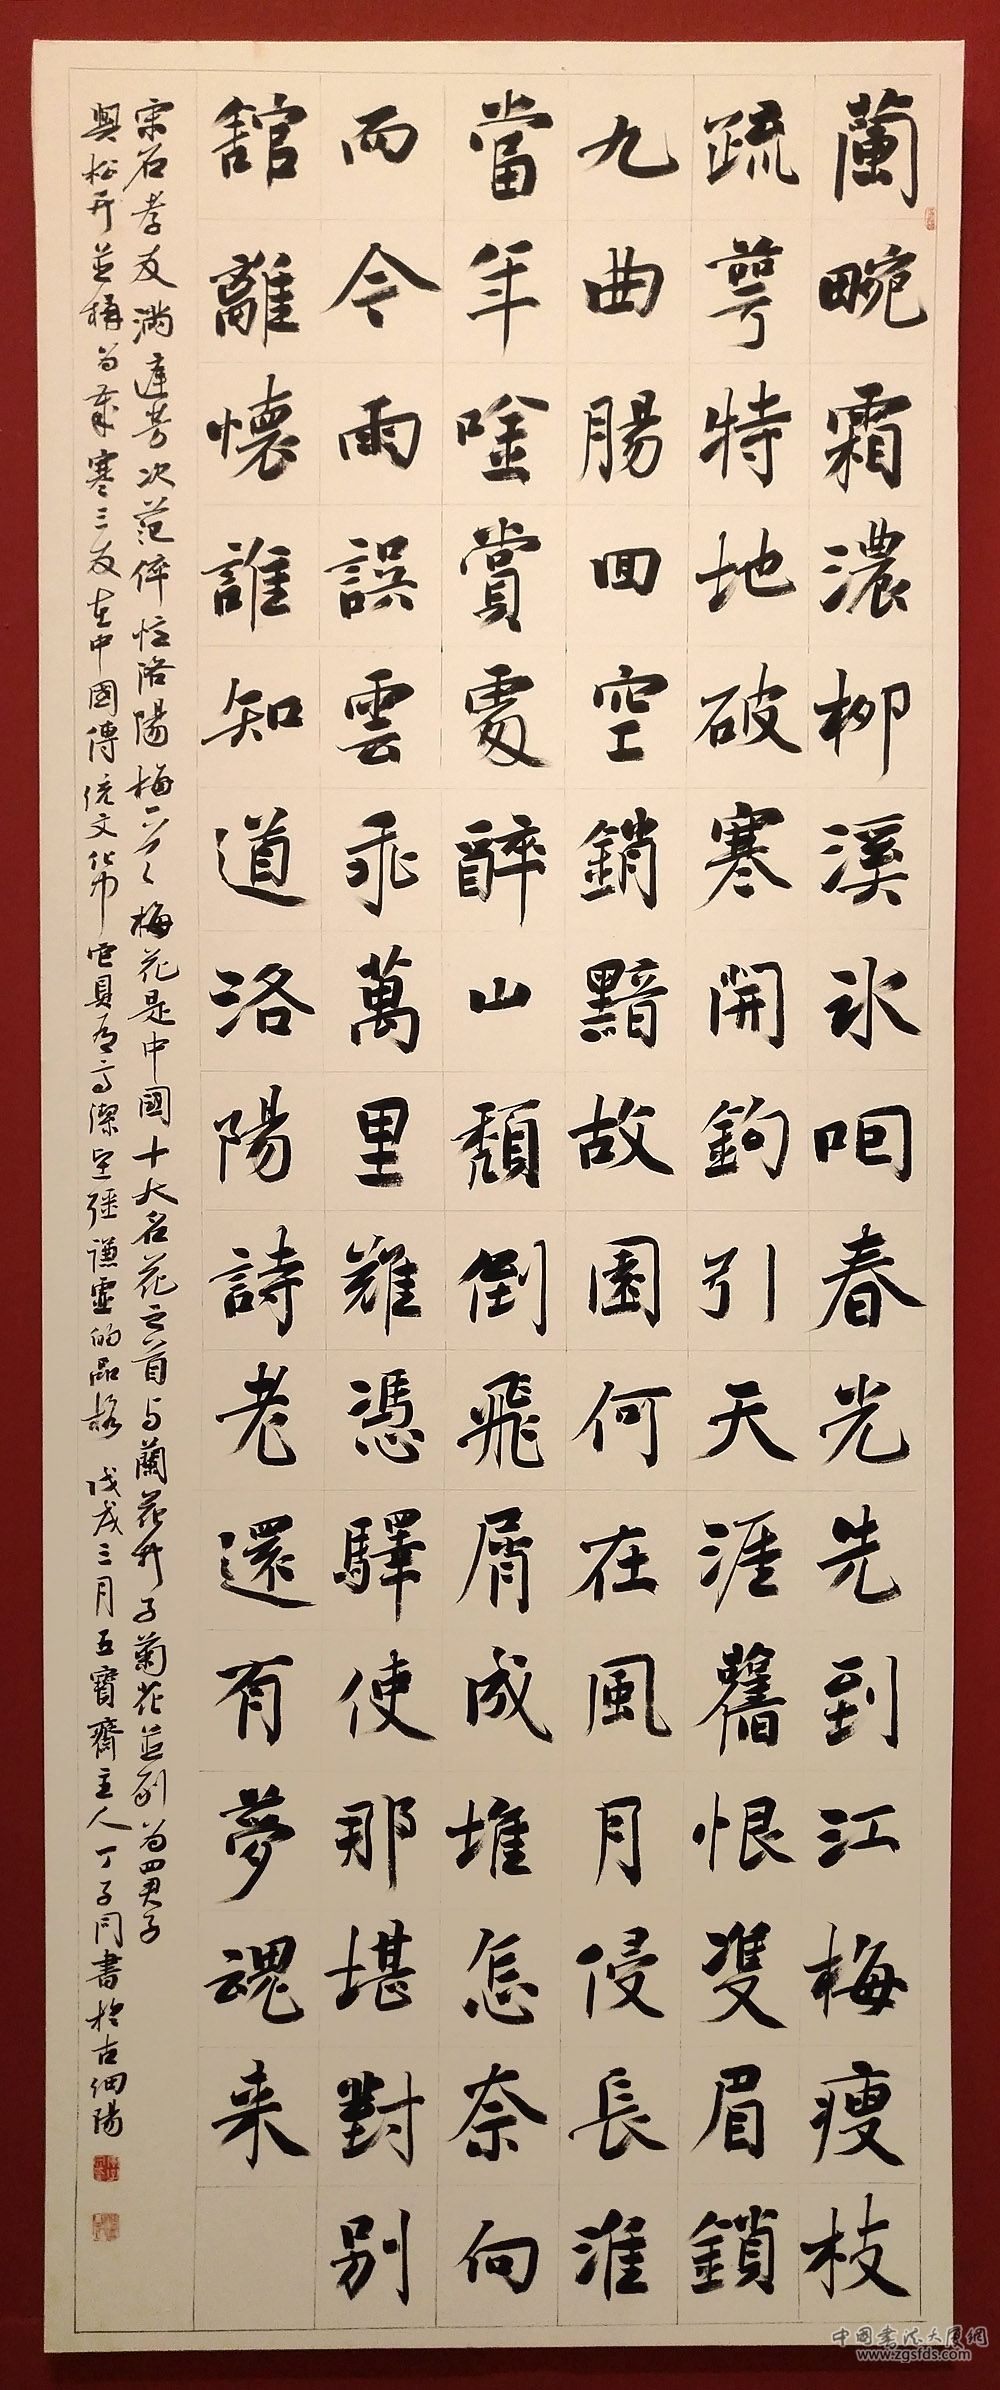 蘭畹霜濃柳溪冰咽春光先到江梅瘦枝
疏萼特地破寒開鉤引天涯舊恨雙眉鎖
九曲腸回空銷黯故園何在風月侵長淮
當年唫賞處醉山頹倒飛屑成堆怎奈向
而今雨誤雲乖萬里難憑驛使那堪對別
館離懷誰知道洛陽詩老還有夢魂来
宋石孝友滿庭芳次范倅憶洛陽梅梅花是中國十大名花之首与蘭花竹子菊花並列为四君子
與松竹並稱为歲寒三友在中國傳统文化中它具有高潔坚强谦虚的品格 戊戌三月五寶齋主人丁子同書於古细陽
中国书法大厦网
www.zgsfds.com